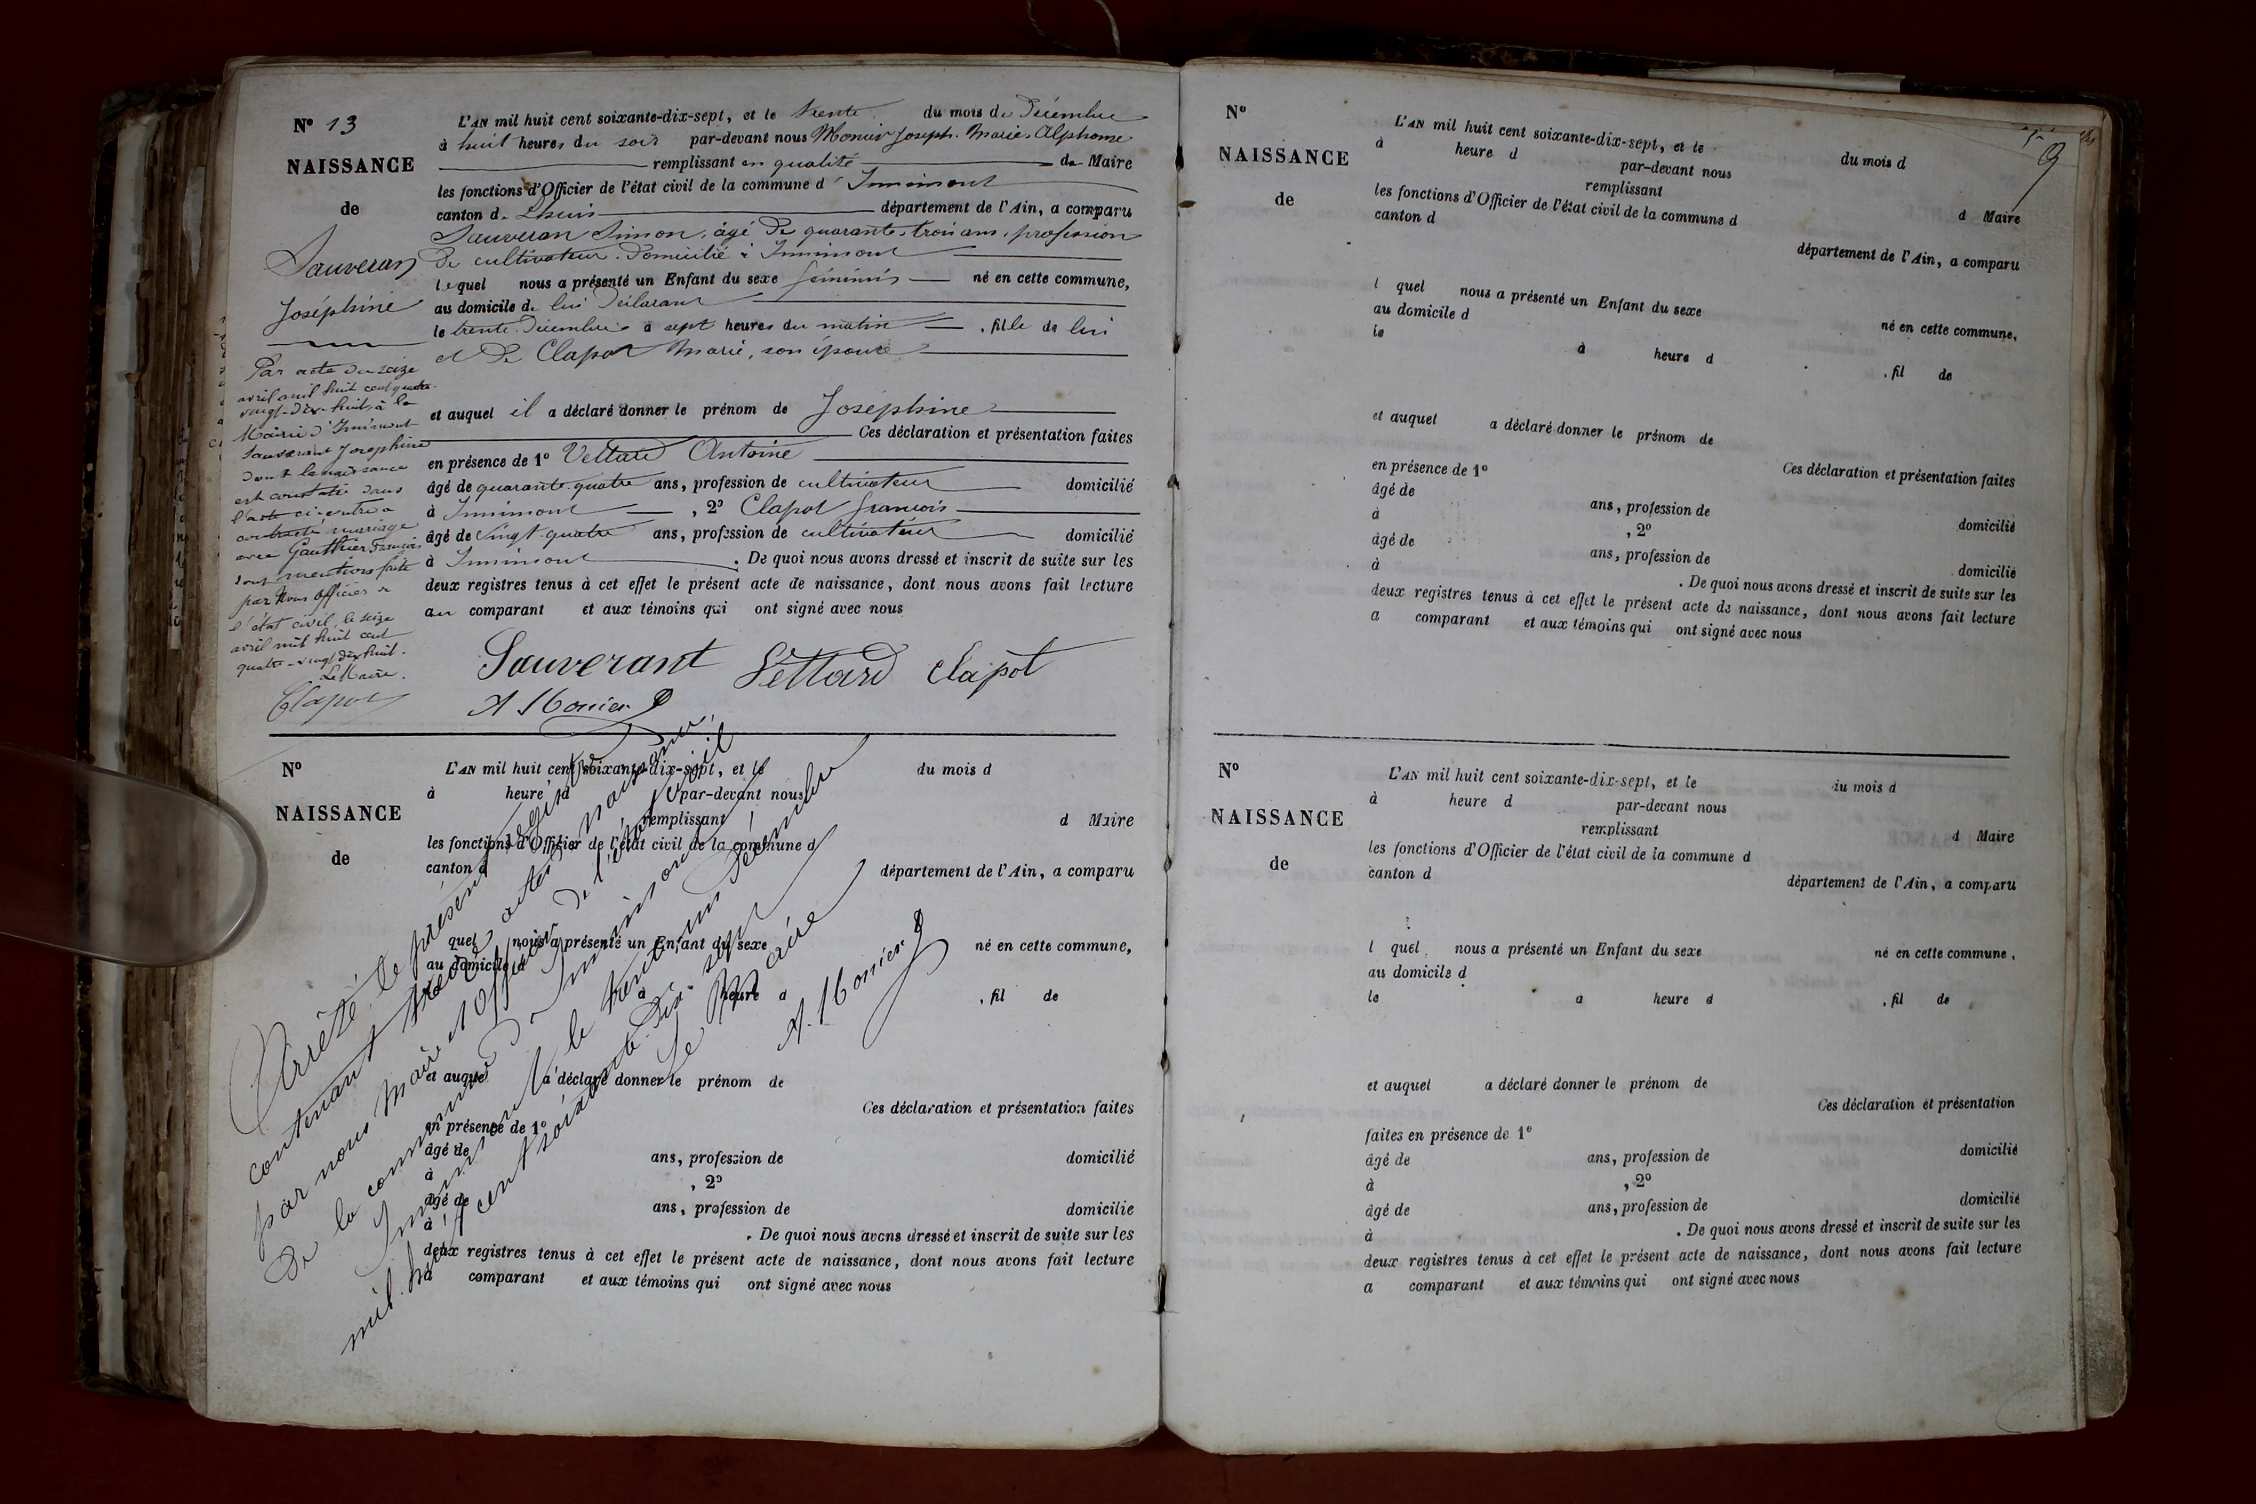 N° 13
NAISSANCE
de
Sauveran
Joséphine
Par acte du seize
avril mil huit cent quatre
vingt-dix-huit, à la
Mairie d'Innimont
Sauverant Joséphine
dont la naissance
est constatée dans
l'acte ci-contre a
contracté mariage
avec Gauthier François
dont mention faite
par Nous officier de
l'état civil, le seize
avril mil huit cent
quatre-vingt dix huit.
Le Maire.
Clapot
L'AN mil huit cent soixante-dix-sept, et le trente du mois de Décembre
à huit heures du soir par-devant nous Monier Joseph-Marie-Alphonse
remplissant en qualité de Maire
les fonctions d'Officier de l'état civil de la commune d'Innimont
canton de Lhuis département de l'Ain, a comparu
Sauveran Simon, âgé de quarante-trois ans, profession
de cultivateur, domicilié à Innimont
lequel nous a présenté un Enfant du sexe féminin né en cette commune,
au domicile de lui déclarant
le trente Décembre à sept heures du matin, fille de lui
et de Clapot Marie, son épouse
et auquel il a déclaré donner le prénom de Joséphine
Ces déclaration et présentation faites
en présence de 1° Vettard Antoine
âgé de quarante-quatre ans, profession de cultivateur domicilié
à Innimont, 2° Clapot François
âgé de vingt-quatre ans, profession de cultivateur domicilié
à Innimont. De quoi nous avons dressé et inscrit de suite sur les
deux registres tenus à cet effet le présent acte de naissance, dont nous avons fait lecture
au comparant et aux témoins qui ont signé avec nous
Sauverant Vettard Clapot
A Monier
N°
NAISSANCE
de
L'AN mil huit cent soixante-dix-sept, et le du mois d
à heure d par-devant nous
remplissant d Maire
les fonctions d'Officier de l'état civil de la commune d
canton d département de l'Ain, a comparu
quel nous a présenté un Enfant du sexe né en cette commune,
au domicile d
à heure d , fil de
et auquel a déclaré donner le prénom de
Ces déclaration et présentation faites
en présence de 1°
âgé de ans, profession de domicilié
à , 2°
âgé de ans, profession de domicilié
à . De quoi nous avons dressé et inscrit de suite sur les
deux registres tenus à cet effet le présent acte de naissance, dont nous avons fait lecture
a comparant et aux témoins qui ont signé avec nous
Arrêté le présent registre
contenant treize actes de naissance
par nous Maire et Officier de l'état civil
de la commune d'Innimont
Innimont le trente un Décembre
mil huit cent soixante-dix-sept
Le Maire
A. Monier
9
N°
NAISSANCE
de
L'AN mil huit cent soixante-dix-sept, et le du mois d
à heure d par-devant nous
remplissant d Maire
les fonctions d'Officier de l'état civil de la commune d
canton d département de l'Ain, a comparu
l quel nous a présenté un Enfant du sexe né en cette commune,
au domicile d
le à heure d , fil de
et auquel a déclaré donner le prénom de
Ces déclaration et présentation faites
en présence de 1°
âgé de ans, profession de domicilié
à , 2°
âgé de ans, profession de domicilié
à . De quoi nous avons dressé et inscrit de suite sur les
deux registres tenus à cet effet le présent acte de naissance, dont nous avons fait lecture
a comparant et aux témoins qui ont signé avec nous
N°
NAISSANCE
de
L'AN mil huit cent soixante-dix-sept, et le du mois d
à heure d par-devant nous
remplissant d Maire
les fonctions d'Officier de l'état civil de la commune d
canton d département de l'Ain, a comparu
l quel nous a présenté un Enfant du sexe né en cette commune,
au domicile d
le a heure d , fil de
et auquel a déclaré donner le prénom de
Ces déclaration et présentation
faites en présence de 1°
âgé de ans, profession de domicilié
à , 2°
âgé de ans, profession de domicilié
à . De quoi nous avons dressé et inscrit de suite sur les
deux registres tenus à cet effet le présent acte de naissance, dont nous avons fait lecture
a comparant et aux témoins qui ont signé avec nous